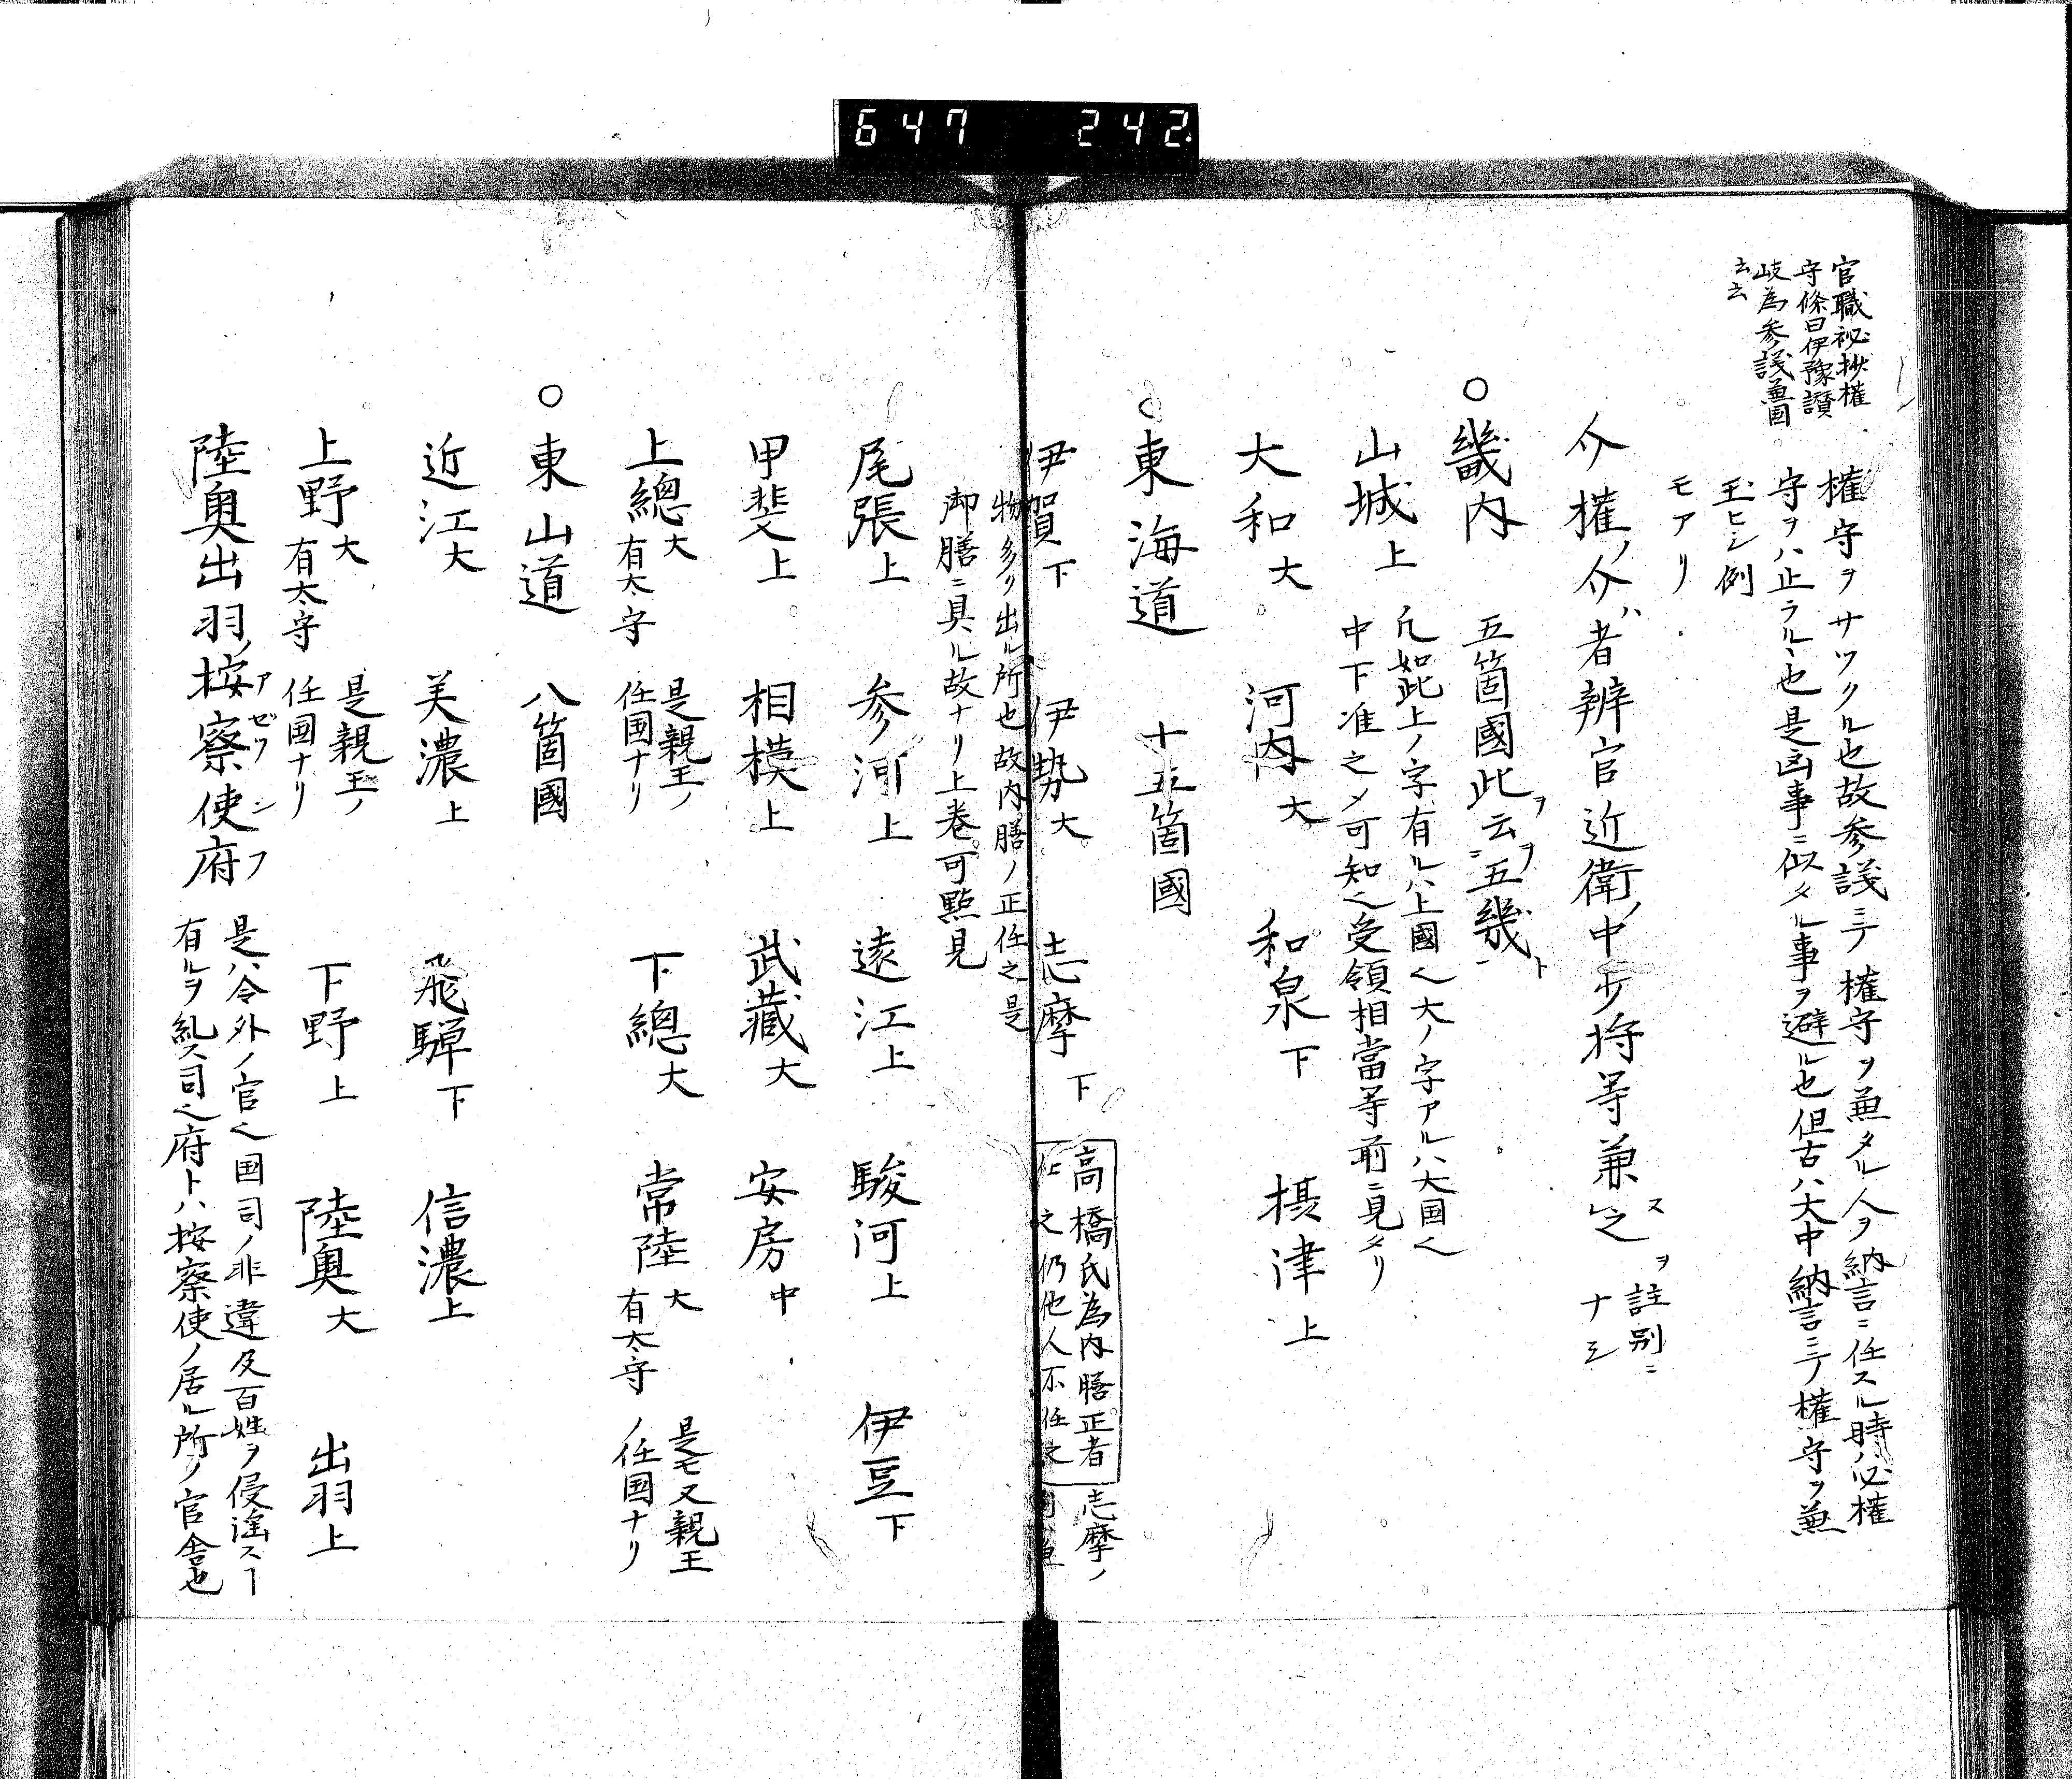 647 242
官職秘抄權
守條曰伊豫讃
岐為参議兼国
云云
權守ヲサツクル也故参議ニテ權守ヲ兼タル人ヲ納言ニ任スル時ハ必權
守ヲハ止ラルヽ也是凶事ニ似タル事ヲ避ル也但古ハ大中納言ニテ權守ヲ兼
玉ヒシ例
モアリ
介權ノ介ハ者辨官近衛ノ中少将等兼スレ之ヲ
註別ニ
ナシ
○畿内 五箇國此ヲ云フニ五畿一ト
山城上
凡如此上ノ字有ルハ上國也大ノ字アルハ大国也
中下准之〆可知之受領相當等前ニ見タリ
大和大 河内大 和泉下 摂津上
○東海道 十五箇國
伊賀下 伊勢大 志摩下
高橋氏為内膳正者 志摩ノ
任之仍他人不任之
物多リ出ル所也故内膳ノ正任之是
御膳ニ具ル故ナリ上巻可點見
尾張上 参河上 遠江上 駿河上 伊豆下
甲斐上 相模上 武藏大 安房中
上總大 有太守 是親王ノ任国ナリ 下總大 常陸大 有太守 是モ又親王ノ任国ナリ
○東山道 八箇國
近江大 美濃上 飛騨下 信濃上
上野大 有太守 是親王ノ任国ナリ 下野上 陸奥大 出羽上
陸奥出羽ノ按察使府 アゼフシフ
是ハ令外ノ官也国司ノ非違及百姓ヲ侵滛スヿ
有ルヲ糺ス司也府トハ按察使ノ居ル所ノ官舎也